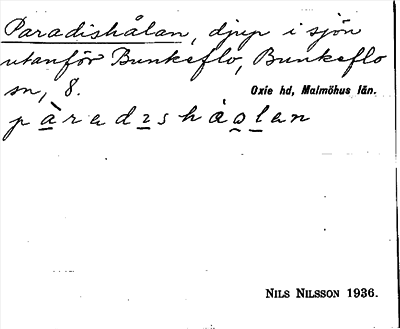 Paradishålan, djup i sjön
utanför Bunkeflo, Bunkeflo
sn, 8. Oxie hd, Malmöhus län.
NILS NILSSON 1936.